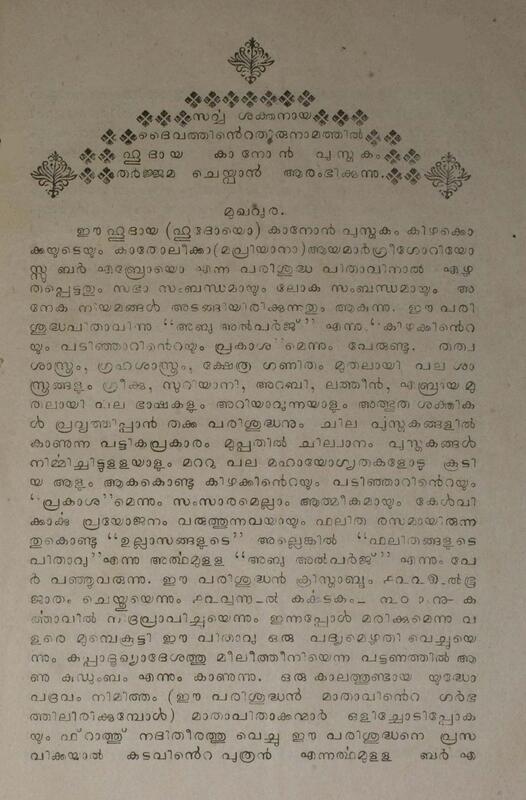 സൎവ്വ ശക്തനായ
ദൈവത്തിൻെറതൃരുനാമത്തിൽ
ഹൂദായ കാനോൻ പുസ്തകം
തർജ്ജമ ചെയ്വാൻ ആരംഭിക്കുന്നു.
മുഖവുര.
ഈ ഹൂദായ (ഹൂദോയൊ) കാനോൻ പുസ്തകം കിഴക്കൊ
ക്കയുടെയും കാതോലീക്കാ(മപ്രിയാനാ)ആയമാർഗ്രീഗോറിയോ
സ്സു ബർ എബ്രോയൊ എന്ന പരിശുദ്ധ പിതാവിനാൽ എഴു
തപ്പെട്ടതും സഭാ സംബന്ധമായും ലോക സംബന്ധമായും അ
നേക നിയമങ്ങൾ അടങ്ങിയിരിക്കുന്നതും ആകുന്നു. ഈ പരി
ശുദ്ധപിതാവിനു "അബു അൽപർജ്" എന്നു "കിഴക്കിൻെറ
യും പടിഞ്ഞാറിൻെറയും പ്രകാശ"മെന്നും പേരുണ്ടു. തത്വ
ശാസ്ത്രം, ഗ്രഹശാസ്ത്രം, ക്ഷേത്ര ഗണിതം മുതലായി പല ശാ
സ്ത്രങ്ങളും ഗ്രീക്കു, സുറിയാനി, അറബി, ലത്തീൻ, എബ്രായ മു
തലായി പല ഭാഷകളും അറിയാവുന്നയാളും അത്ഭുത ശക്തിക
ൾ പ്രവൃത്തിപ്പാൻ തക്ക പരിശുദ്ധനും ചില പുസ്തകങ്ങളിൽ
കാണുന്ന പട്ടികപ്രകാരം മുപ്പതിൽ ചില്വാനം പുസ്തകങ്ങൾ
നിൎമ്മിച്ചിട്ടുള്ളയാളും മററു പല മഹായോഗ്യതകളോടു കൂടി
യ ആളും ആകകൊണ്ടു കിഴക്കിൻെറയും പടിഞ്ഞാറിൻെറയും
"പ്രകാശ"മെന്നും സംസാരമെല്ലാം ആത്മീകമായും കേൾവി
ക്കാൎക്കു പ്രയോജനം വരുത്തുന്നവയായും ഫലിത രസമായിരുന്ന
തുകൊണ്ടു "ഉല്ലാസങ്ങളുടെ" അല്ലെങ്കിൽ "ഫലിതങ്ങളുടെ
പിതാവു"എന്നു അൎത്ഥമുള്ള "അബു അൽപർജ്" എന്നും പേ
ർ പഞ്ഞുവരുന്നു. ഈ പരിശുദ്ധൻ ക്രിസ്താബ്ദം ൧൨൨൬ൽഭൂ
ജാതം ചെയ്തുയെന്നും കൎക്കടകം ൩൦ ക
ൎത്താവിൽ നിദ്രപ്രാപിച്ചുയെന്നും ഇന്നപ്പോൾ മരിക്കുമെന്നു വ
ളരെ മുമ്പെകൂട്ടി ഈ പിതാവു ഒരു പദ്യമെഴുതി വെച്ചുയെ
ന്നും കപ്പാദൂഖ്യാദേശത്തു മീലീത്തീനിയെന്ന പട്ടണത്തിൽ ആ
ണു കുഡുംബം എന്നും കാണുന്നു. ഒരു കാലത്തുണ്ടായ യുദ്ധോ
പദ്രവം നിമിത്തം (ഈ പരിശുദ്ധൻ മാതാവിൻെറ ഗർഭ
ത്തിലിരിക്കുമ്പോൾ) മാതാപിതാക്കന്മാർ ഒളിച്ചോടിപ്പോക
യും ഫ്റാത്ത് നദിതീരത്തു വെച്ചു ഈ പരിശുദ്ധനെ പ്രസ
വിക്കയാൽ കടവിൻെറ പുത്രൻ എന്നൎത്ഥമുള്ള ബർ എ